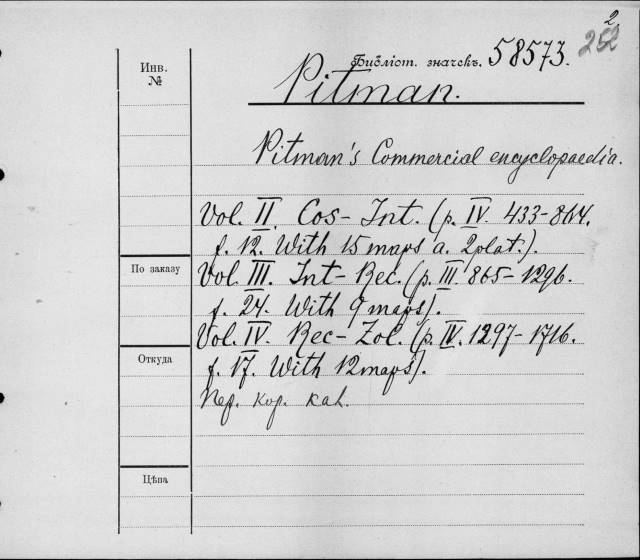 2
252
Инв.
№
Библіот. значекъ. 58573.
Pitman.
Pitman's Commercial encyclopaedia.
Vol. II. Cos-Int. (p. IV. 433-864.
f. 12. With 15 maps a. 2 plat.).
По заказу
Vol. III. Int-Rec. (p. III. 865-1296.
f. 24. With 9 maps).
Vol. IV. Rec-Zol. (p. IV. 1297-1716.
Откуда
f. 17. With 12 maps).
Пер. кор. кал.
Цѣна